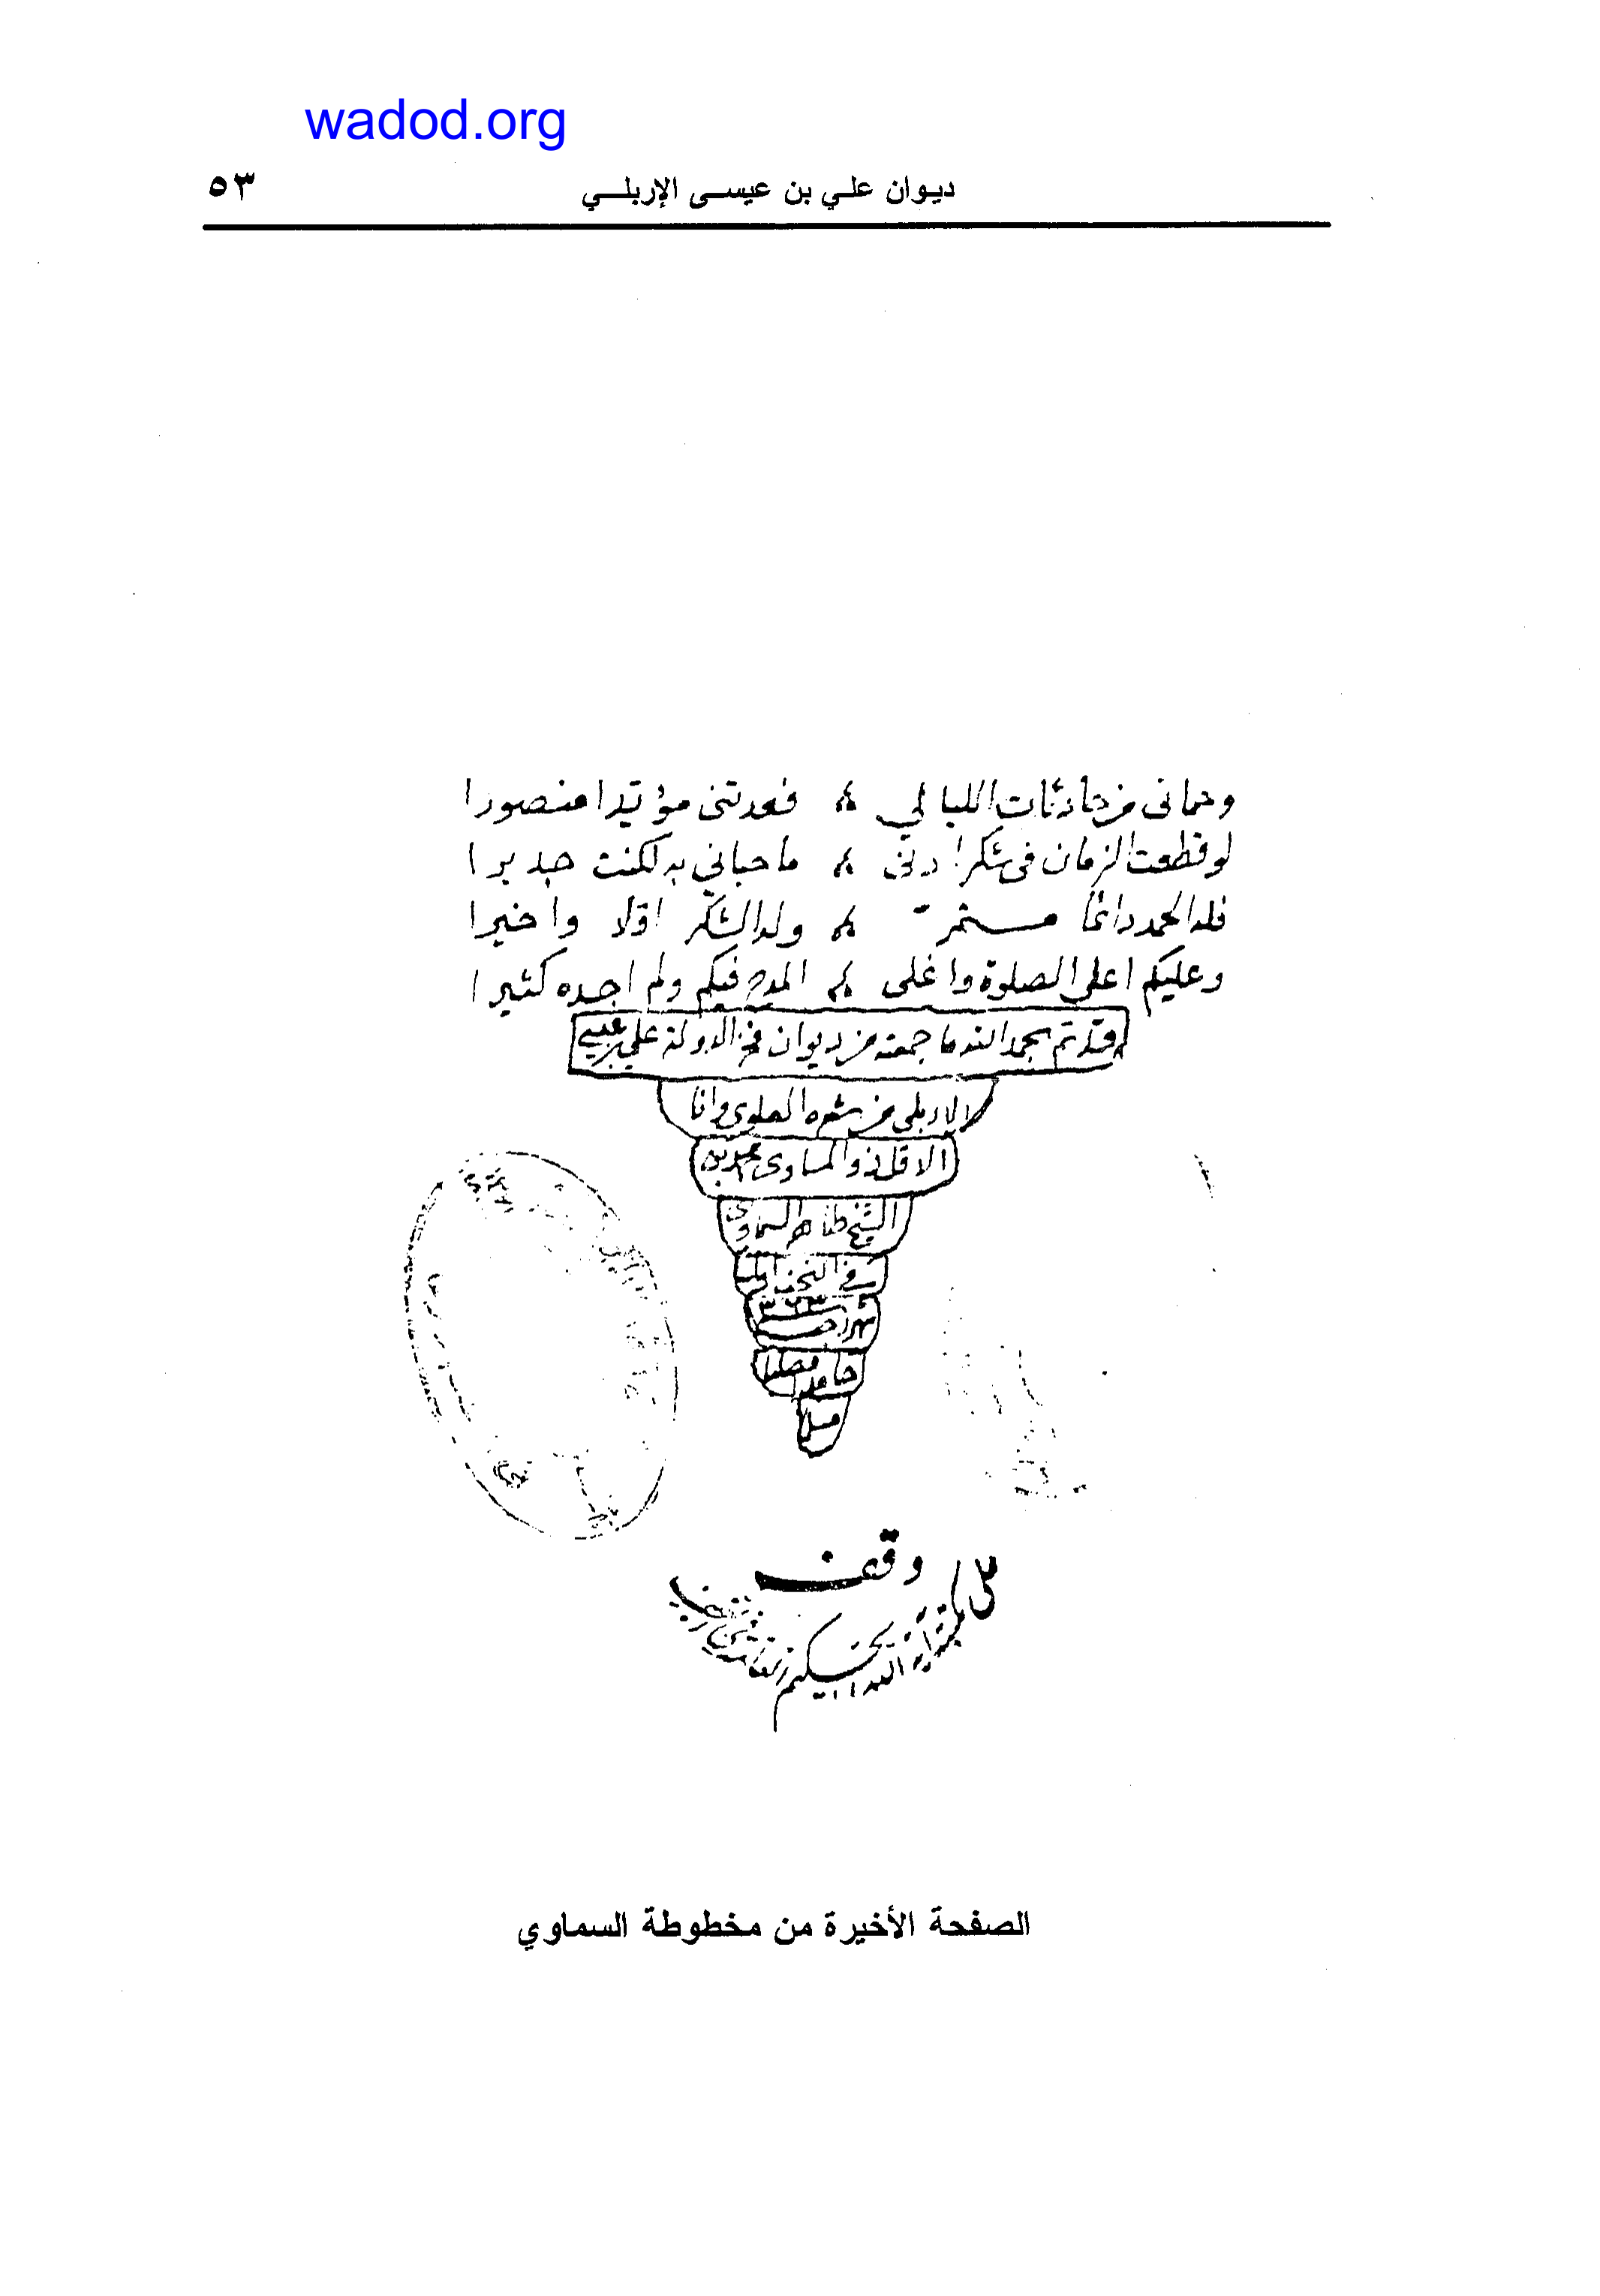 wadod.org
ديوان علي بن عيسى الإربلي ٥٣
وحمانى من حادثات الليالي فعدتنى مؤيدا منصورا
لو قطعت الزمان فى شكر ادنى ما حبانى به لكنت جديرا
فله الحمد دائما مستمر وله الشكر اولا واخيرا
وعليكم اعلى الصلوة واغلى المدح فيكم ولم اجده كثيرا
وقد تم بحمد الله ما جمعته من ديوان فخر الدولة علي بن عيسى
الاربلي من شعره العلوى وانا
الاقل ذو المساوى محمد بن
الشيخ طاهر السماوى
فى النجف
٣٦٣
حامدا مصليا
مسلما
وقف
على مكتبة آية الله الحكيم العامة
الصفحة الأخيرة من مخطوطة السماوي